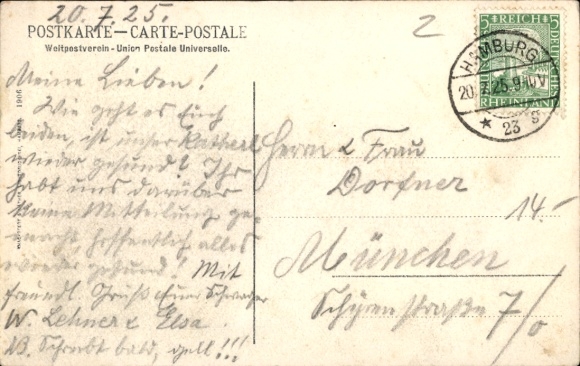 20.7.25.
POSTKARTE — CARTE-POSTALE
Weltpostverein - Union Postale Universelle.
Meine Lieben!
Wie geht es Euch
beiden, ist unser Katherl
wieder gesund? Ihr
habt uns darüber
keine Mitteilung ge-
macht, hoffentlich alles
wieder gesund! Mit
freundl. Gruß Euer Schwager
W. Lehner & Elsa.
NB. Schreibt bald, gell!!!
1906
2
5 REICH 5
RHEINLAND
HAMBURG
20.7.25. 9-10 V
* 23 g
Herrn & Frau
Dorfner
14.-
München
Schyrenstraße 7/0